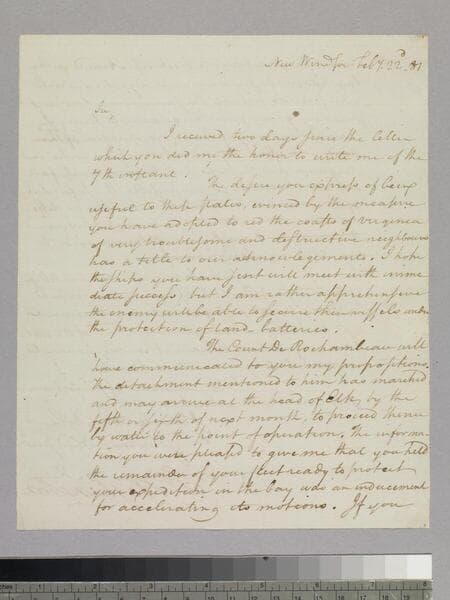 New Windsor Feby. 22d. 81
Sir,
I received two days since the letter
which you did me the honor to write me of the
7th instant.
The desire you express of being
useful to these states, evinced by the measure
you have adopted to rid the coasts of Virginia
of very troublesome and destructive neighbours
has a title to our acknowlegements. I hope
the ships you have sent will meet with imme
diate success, but I am rather apprehensive
the enemy will be able to secure their vessels under
the protection of land batteries.
The Count De Rochambeau will
have communicated to you my propositions.
The detachment mentioned to him has marched
and may arrive at the head of Elk, by the
fifth or sixth of next month, to proceed thence
by water to the point of operation. The informa
tion you were pleased to give me that you held
the remainder of your fleet ready to protect
your expedition in the bay was an inducement
for accelerating its motions. If you
inches 1 2 3 4 5 6 7 8